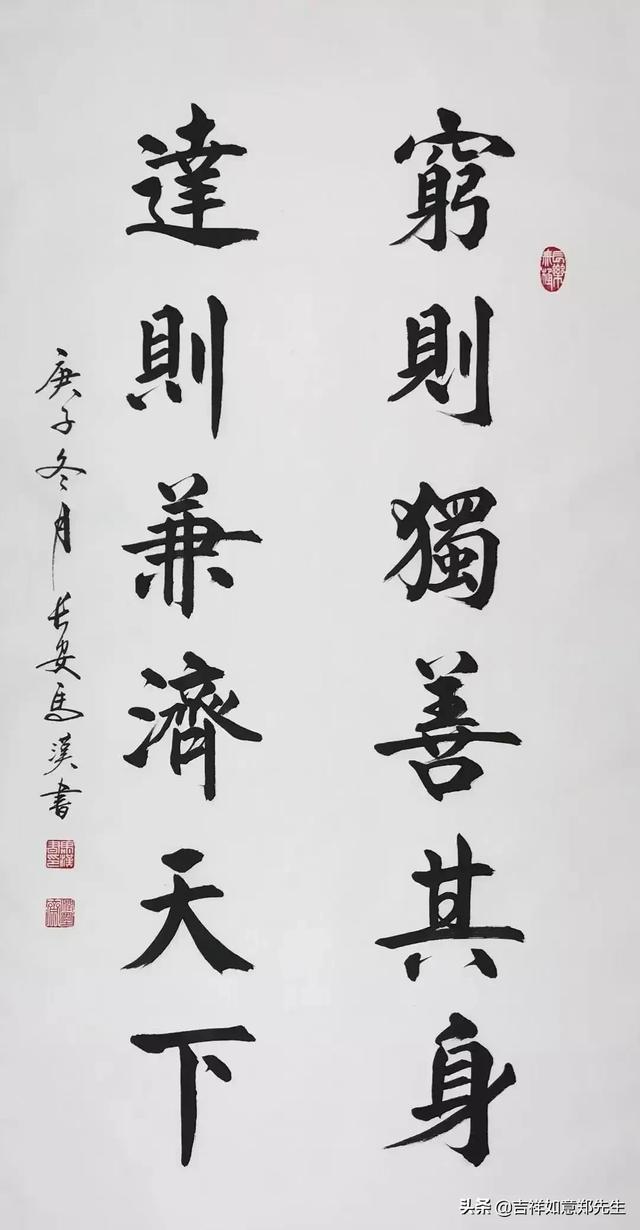 窮則獨善其身
達則兼濟天下
庚子冬月長安馬漢書
頭条 @吉祥如意郑先生